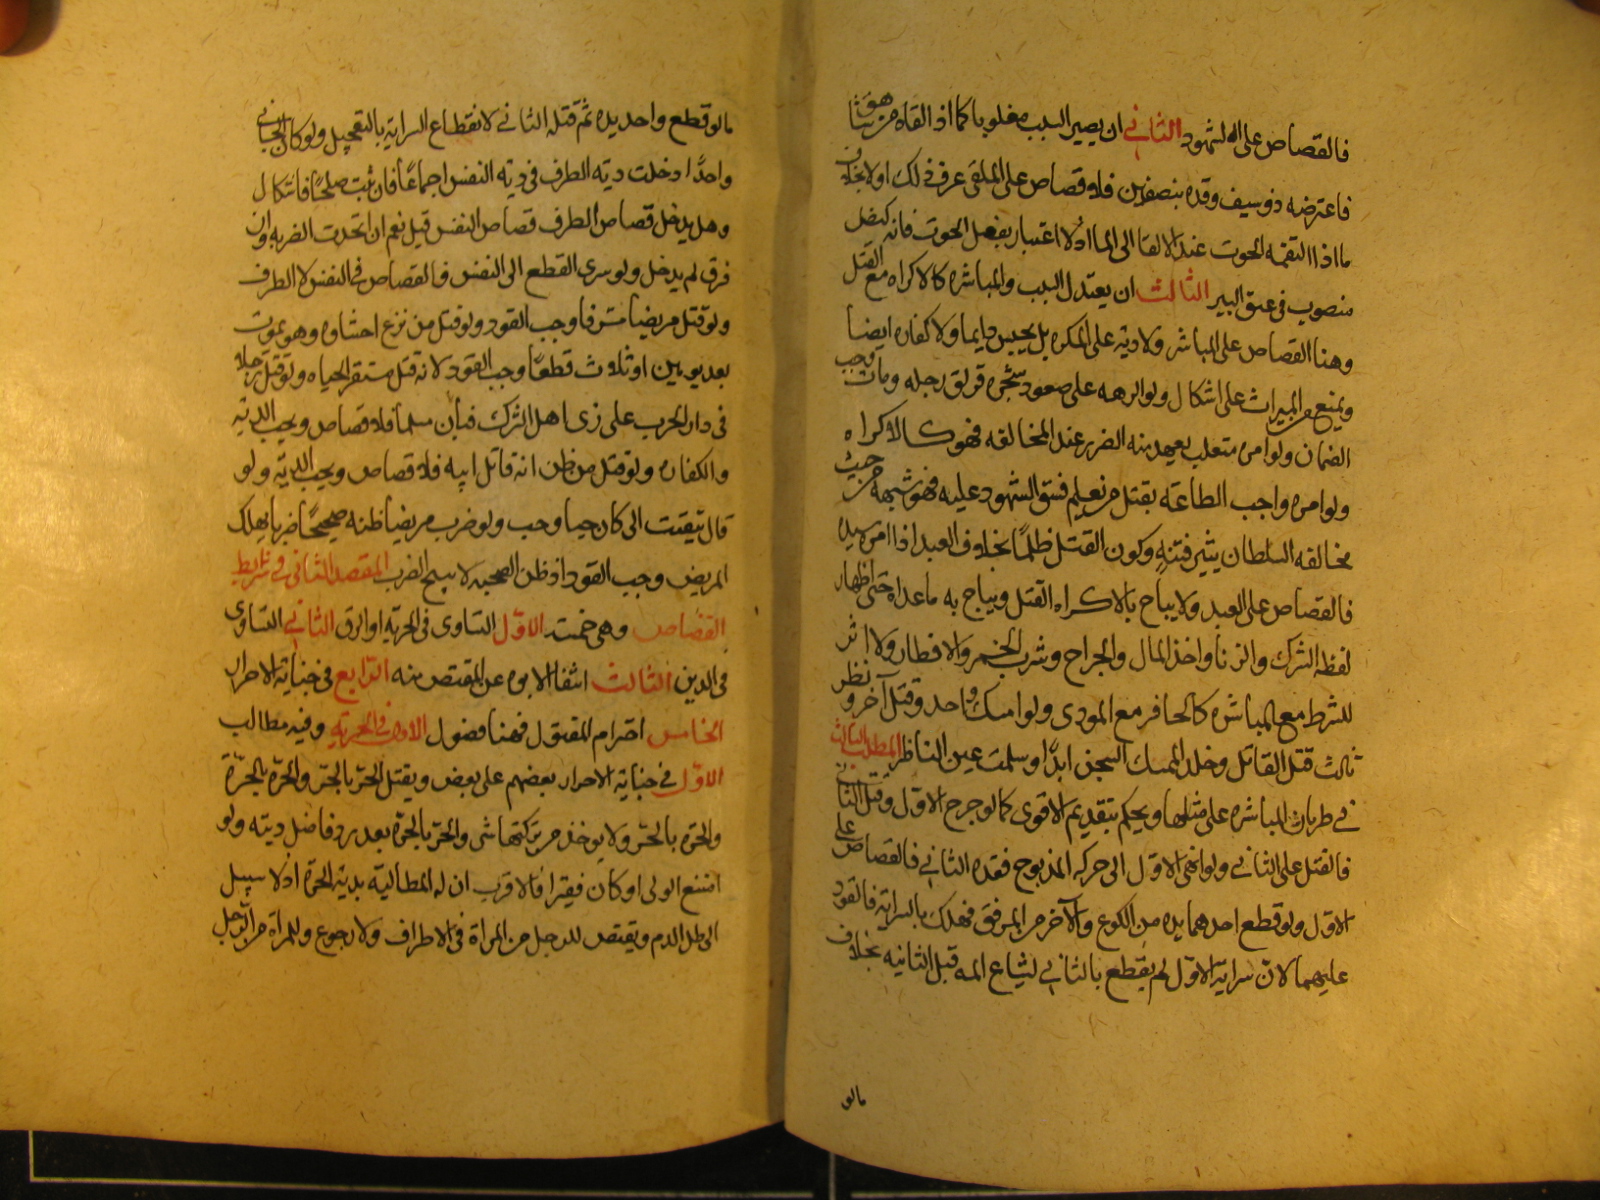 فالقصاص على الشهود الثاني ان يصير السبب مغلوبا كما اذا القاه من شاهق
فاعترضه ذو سيف وقده بنصفين فلا قصاص على الملقى عرف ذلك او لا بخلاف
ما اذا التقمه الحوت عند الالقا الى الما اذ لا اعتبار بفعل الحوت فانه كنصل
منصوب في عمق البير الثالث ان يعتدل السبب والمباشره كالاكراه مع القتل
وهنا القصاص على المباشر ولا دية على المكره بل يحبس دايما ولا كفاره ايضا
ويمنع من الميراث على اشكال ولو اكرهه على صعود شجره فزلق رجله ومات وجب
الضمان ولو امره متغلب يعهد منه الضرر عند المخالفه فهو كالاكراه
ولو امره واجب الطاعة بقتل من يعلم فسق الشهود عليه فهو شبهه من حيث
مخالفه السلطان يثير فتنه وكون القتل ظلمًا بخلاف العبد اذا امره سيده
فالقصاص على العبد ولا يباح بالاكراه القتل ويباح به ما عداه حتى اظهار
لفظه الشرك والزنا واخذ المال والجراح وشرب الخمر والافطار ولا اثر
للشرط مع المباشره كالحافر مع المودي ولو امسك واحد وقتل آخر ونظر
ثالث قتل القاتل وخلد الممسك السجن ابدًا وسملت عين الناظر المطلب الثالث
في طريان المباشره على مثلها ويحكم بتقديم الاقوى كما لو جرح الاول وقتل الثاني
فالقتل على الثاني ولو انهى الاول الى حركه المذبوح فقده الثاني فالقصاص على
الاول ولو قطع احدهما يده من الكوع والآخر من المرفق فهلك بالسراية فالقود
عليهما لان سراية الاول لم يقطع بالثاني لشياع المه قبل الثانيه بخلاف
مالو
مالو قطع واحد يده ثم قتله الثاني لانقطاع السراية بالتعجيل ولو كان الجاني
واحدًا دخلت دية الطرف في دية النفس اجماعًا فان ثبت صلحًا فاشكال
وهل يدخل قصاص الطرف قصاص النفس قيل نعم ان اتحدت الضربه وان
فرق لم يدخل ولو سرى القطع الى النفس فالقصاص في النفس لا الطرف
ولو قتل مريضا مشرفا وجب القود ولو قتل من نزع احشاوه وهو يموت
بعد يومين او ثلاث قطعًا وجب القود لانه قتل مستقر الحياه ولو قتل رجلا
في دار الحرب على زي اهل الشرك فبان مسلما فلا قصاص ويجب الدية
والكفاره ولو قتل من ظن انه قاتل ابيه فلا قصاص ويجب الدية ولو
قال تيقنت ابي كان حيا وجب ولو ضرب مريضا ظنه صحيحًا ضربا يهلك
المريض وجب القود اذ ظن الصحه لا يبيح الضرب المقصد الثاني في شرايط
القصاص وهي خمسة الاول التساوى في الحرية او الرق الثاني التساوى
في الدين الثالث انتفا الابوه عن المقتص منه الرابع في جناية الاحرار
الخامس احترام المقتول فهنا فصول الاول في الحرية وفيه مطالب
الاول في جناية الاحرار بعضهم على بعض ويقتل الحر بالحر والحرة بالحرة
والحره بالحر ولا يوخذ من تركتها شى والحر بالحرة بعد رد فاضل ديته ولو
امتنع الولى او كان فقيرا فالاقرب ان له المطالبة بدية الحرة اذ لا سبيل
الى طل الدم ويقتص للرجل من المراة في الاطراف ولا رجوع وللمراة من الرجل